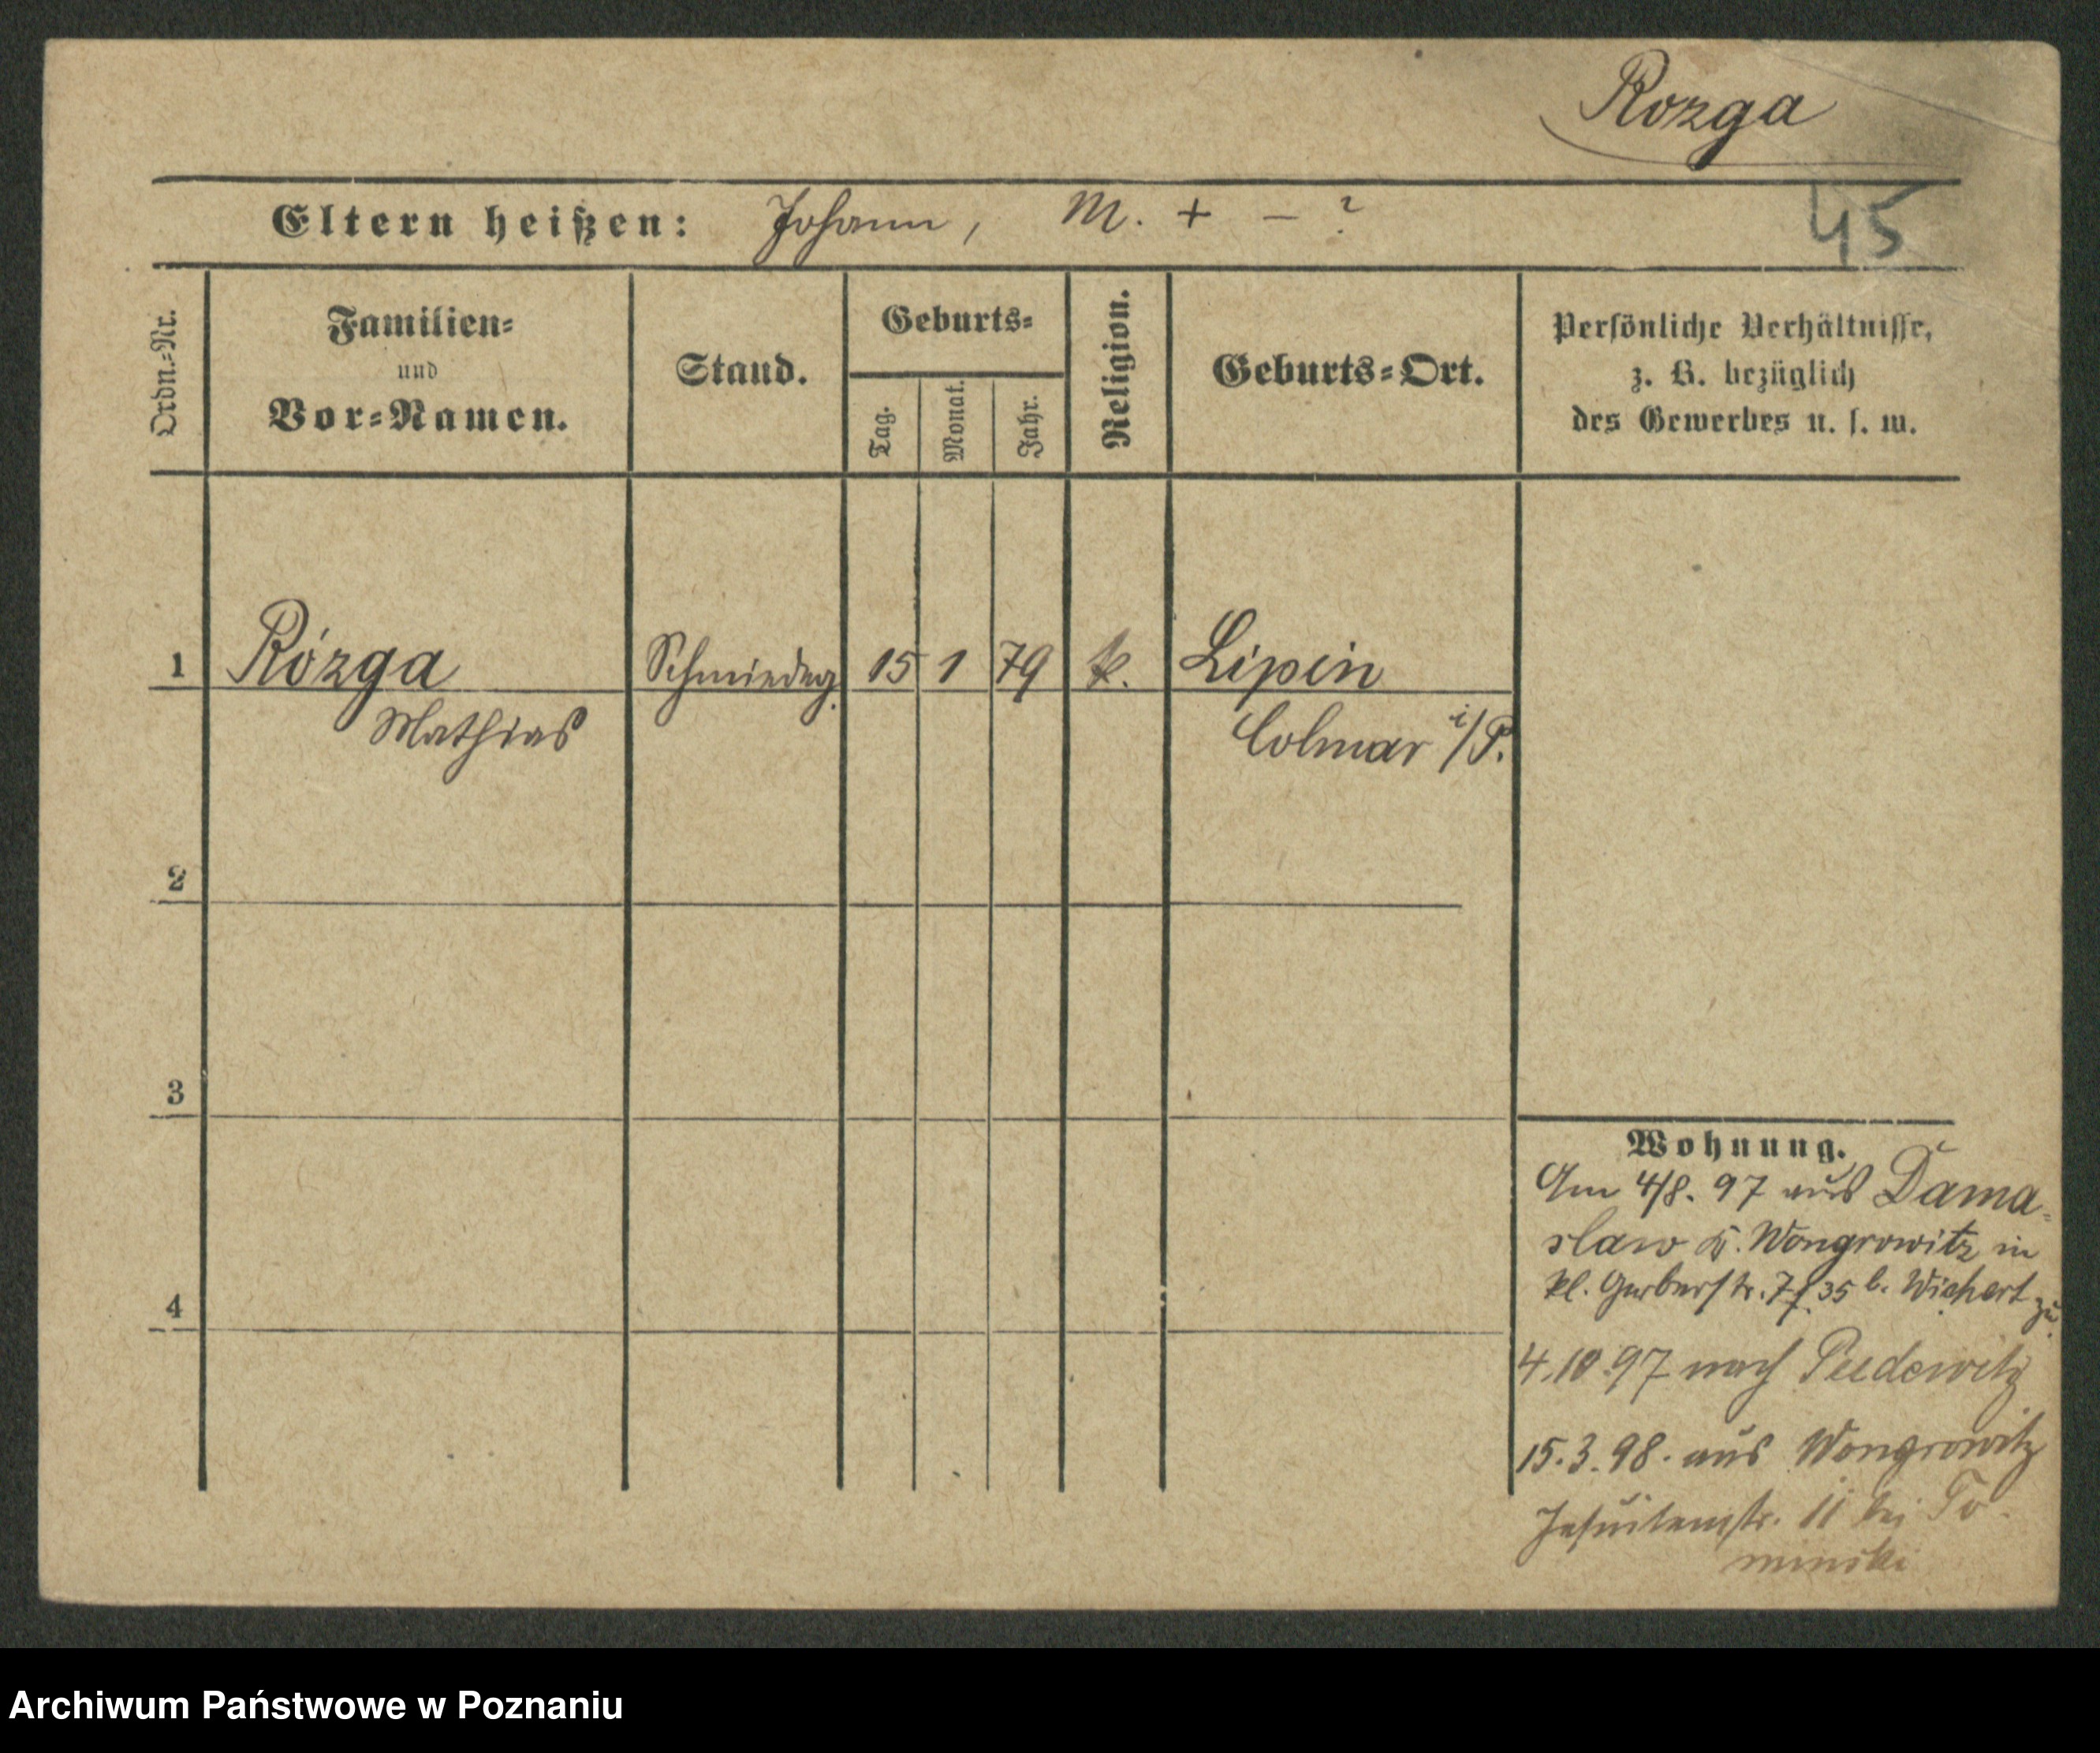 Rozga
Eltern heißen: Johann, M. + – ?
45
Ordn.-Nr.
Familien-
und
Vor-Namen.
Stand.
Geburts-
Tag.
Monat.
Jahr.
Religion.
Geburts-Ort.
Persönliche Verhältnisse,
z. B. bezüglich
des Gewerbes u. s. w.
1 Rózga Schmiedeg. 15 1 79 k. Lipin
Mathias Colmar i/P.
2
3
4
Wohnung.
Am 4/8. 97 aus Dama-
slaw Kr. Wongrowitz in
kl. Gerberstr. 7 35 b. Wichert zu.
4.10.97 nach Pudewitz
15.3.98. aus Wongrowitz
Jesuitenstr. 11 bei To-
minski
Archiwum Państwowe w Poznaniu